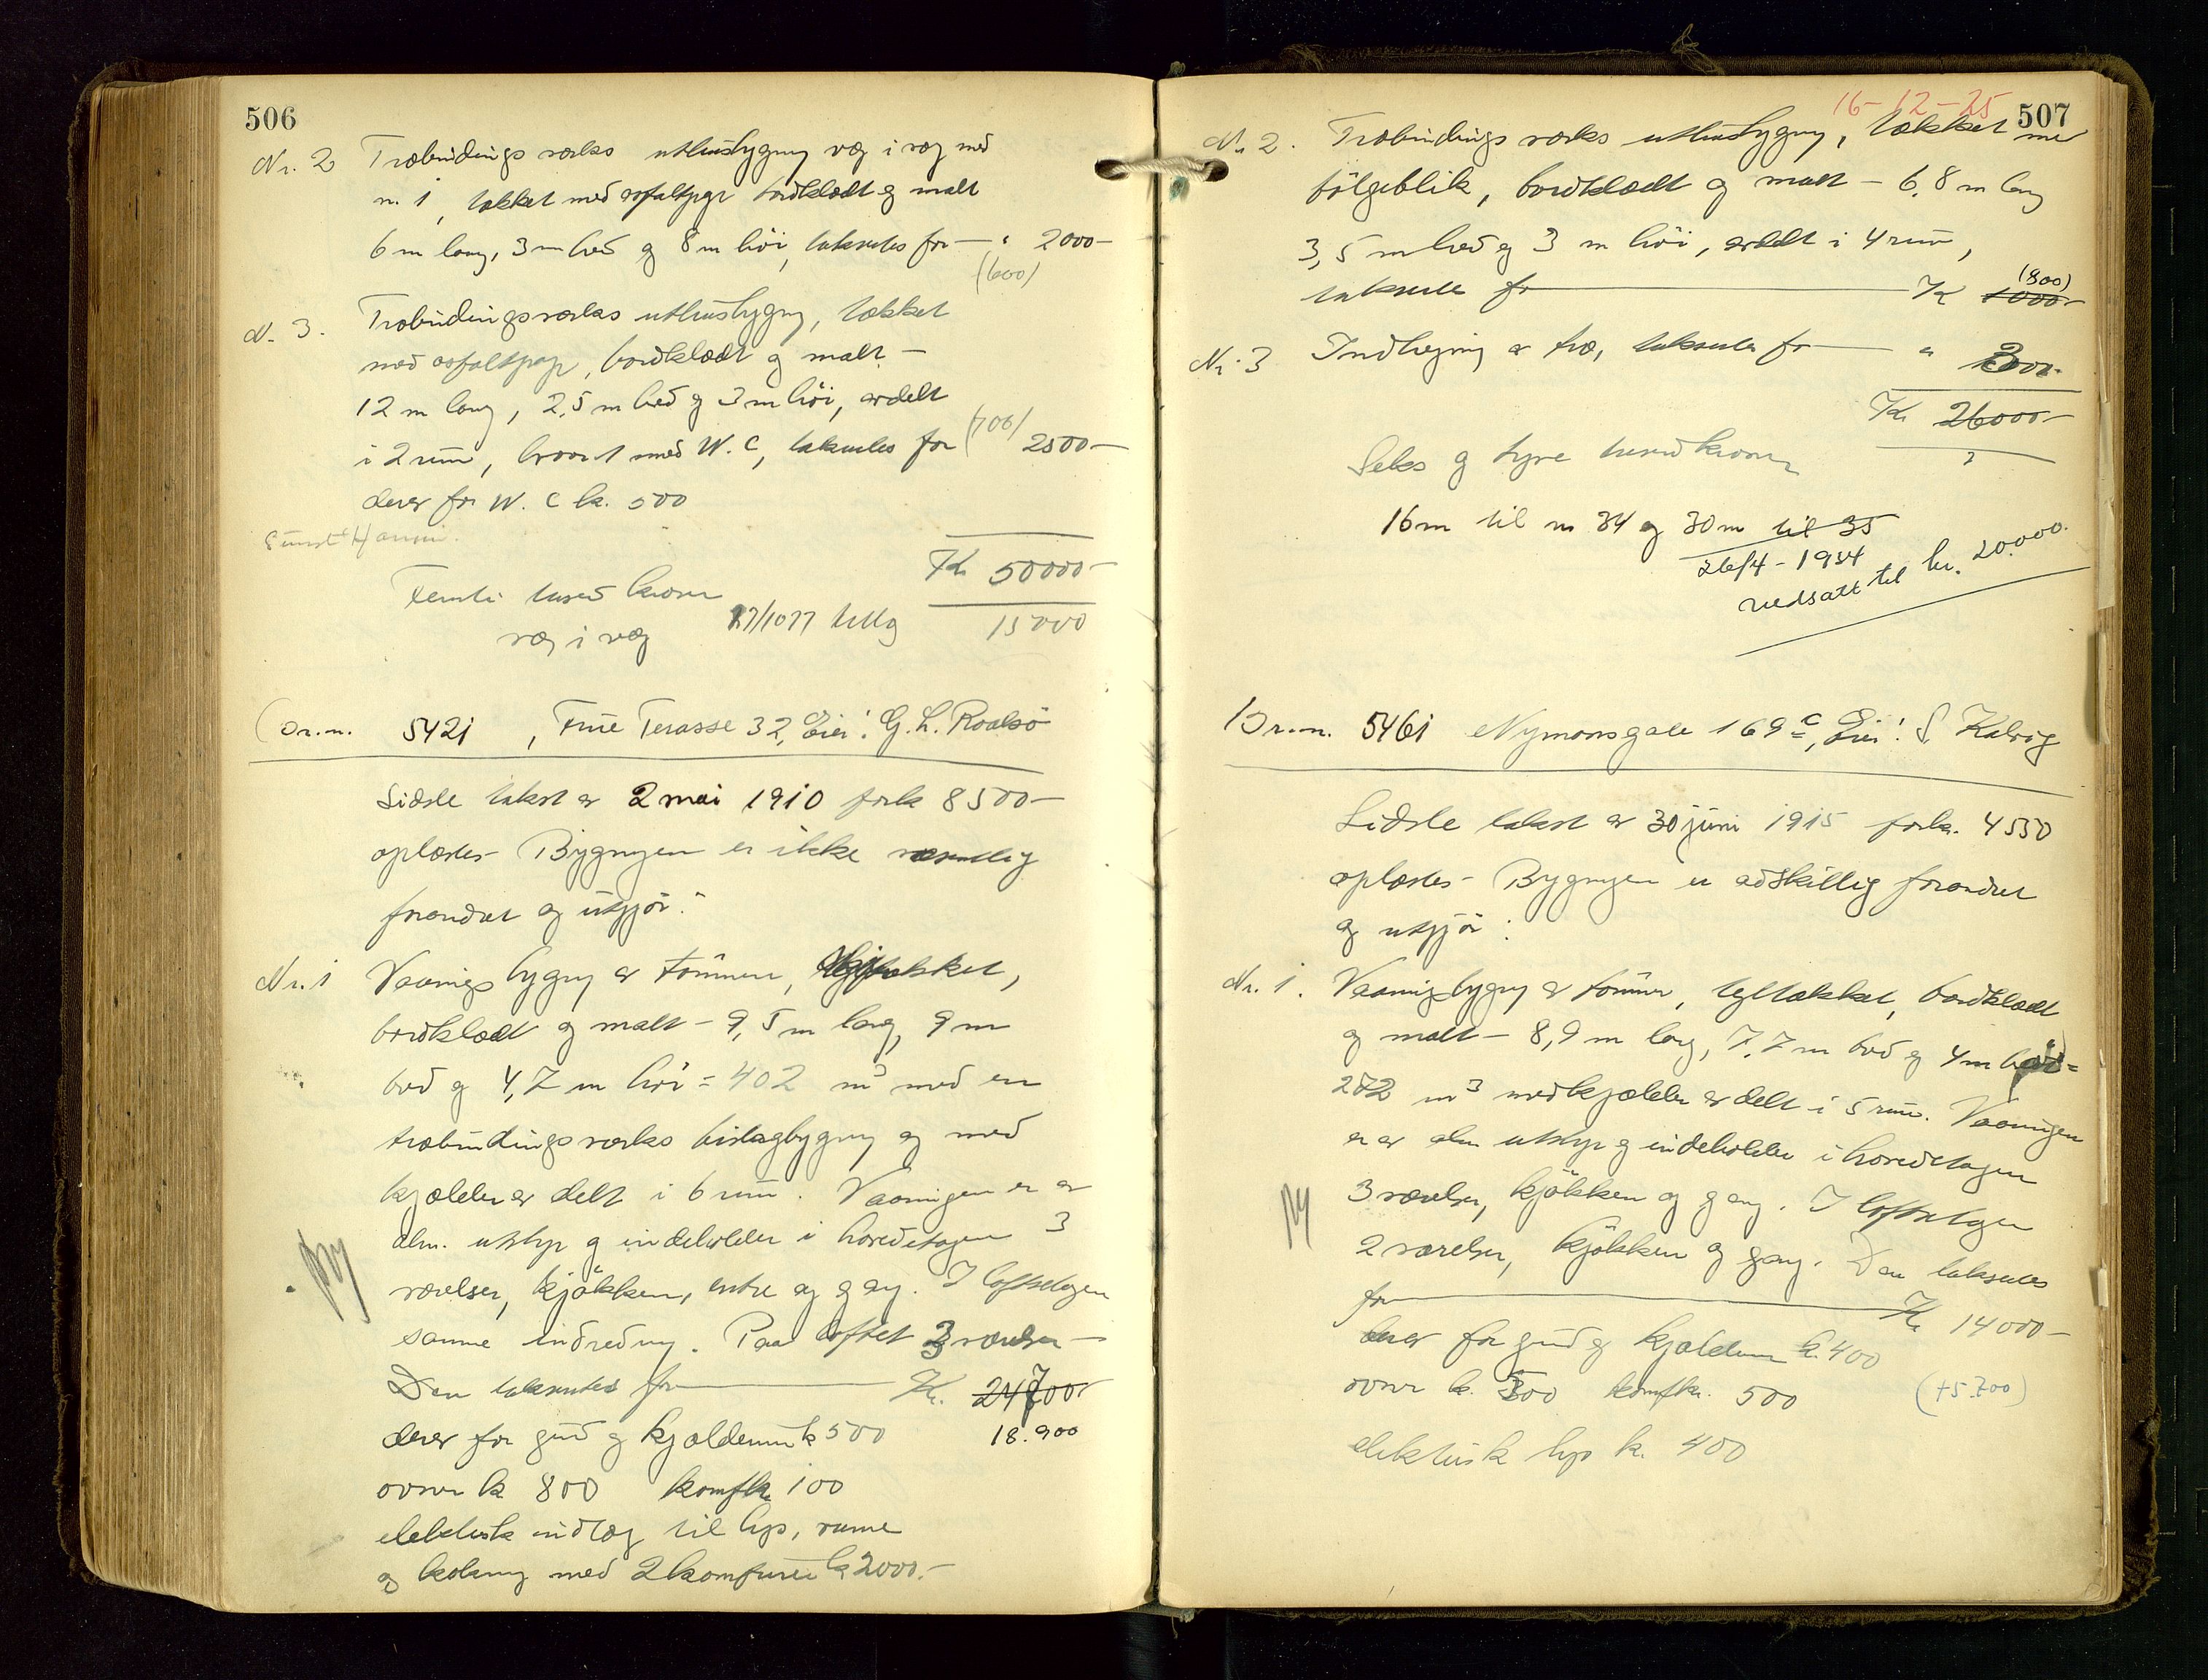 506
Nr. 2 Træbindingsværks uthusbygning væg i væg med
nr. 1, tækket med asfaltpap bordklædt og malt
6 m lang, 3 m bred og 8 m høi, taksertes for — " 2000 —
(600)
N. 3. Træbindingsværks uthusbygning, tækket
med asfaltpap, bordklædt og malt —
12 m lang, 2,5 m bred og 3 m høi, avdelt
i 2 rum, hvorav 1 med W.C, taksertes for (700) 2500 —
derav for W.C k. 500
Kr 50000 —
Femti tusend kroner
væg i væg 15000
Br.n. 5421, Frue Terasse 32, Eier: G. L. Roalsö
Sidste takst av 2 mai 1910 for k 8500 —
oplæstes — Bygningen er ikke væsentlig
forandret og utgjør:
Nr. 1 Vaaningsbygning av tömmer, tegltækket,
bordklædt og malt — 9,5 m lang, 9 m
bred og 4,7 m høi = 402 m³ med en
træbindingsværks bislagbygning og med
kjælder avdelt i 6 rum. Vaaningen er av
alm. utstyr og indeholder i hovedetagen 3
værelser, kjøkken, entre og gang. I loftsetagen
samme indredning. Paa loftet 3 værelser —
Den taksertes for — Kr. 24700
derav for grund og kjældermur k 500 18.900
ovner k 800 komfk. 100
elektrisk indlæg til lys, varme
og kokning med 2 komfurer k 2000.—
16-12-25 507
Nr. 2. Træbindingsværks uthusbygning, tækket med
bølgeblik, bordklædt og malt — 6,8 m lang
3,5 m bred og 3 m høi, avdelt i 4 rum,
taksertes for — Kr 1000 —
(800)
Nr. 3 Indhegning av træ, taksertes for — "
Kr 26000 —
Seks og tyve tusend kroner
16 m til nr 34 og 30 m til 35
26/4 - 1934
nedsatt til kr. 20.000.
Br.n. 5461 Nymansgate 169 c, Eier: S. Kalvig
Sidste takst av 30 juni 1915 for k. 4550
oplæstes — Bygningen er adskillig forandret
og utgjør:
Nr. 1. Vaaningsbygning av tömmer, tegltækket, bordklædt
og malt — 8,9 m lang, 7,7 m bred og 4 m høi =
272 m³ med kjælder avdelt i 5 rum. Vaaningen
er av alm utstyr og indeholder i hovedetagen
3 værelser, kjøkken og gang. I loftsetagen
2 værelser, kjøkken og gang. Den taksertes
for — Kr. 14000 —
derav for grund og kjældermur k. 400
ovner k. 300 komfk. 500 (+5.700)
elektrisk lys k. 400